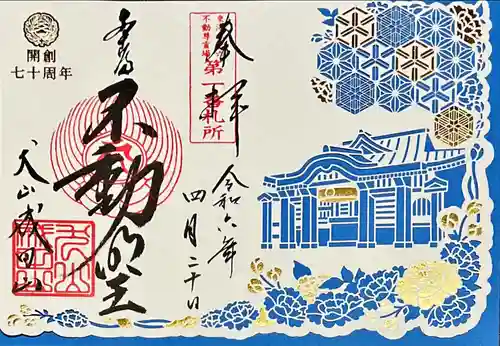 奉拝
不動尊霊場
第一番札所
令和六年
四月二十日
不動明王
開創
七十周年
犬山成田山